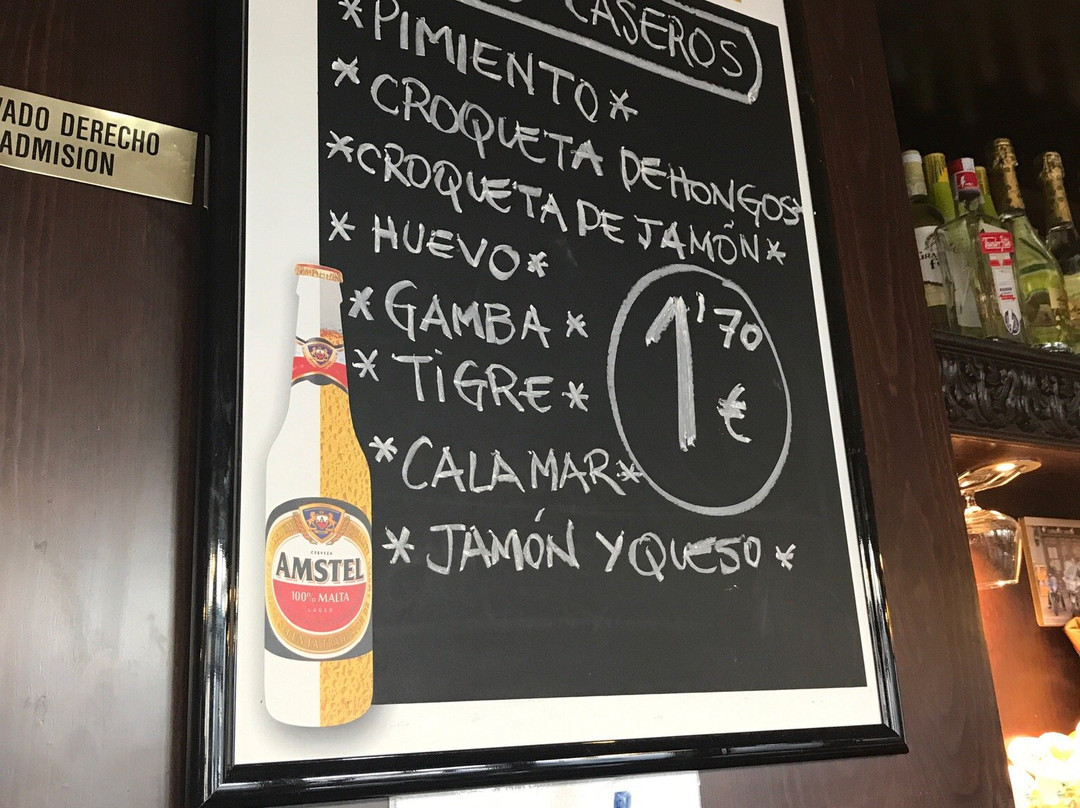 CASEROS
*PIMIENTO*
*CROQUETA DE HONGOS*
*CROQUETA DE JAMÓN*
* HUEVO *
* GAMBA *
* TIGRE *
* CALAMAR *
* JAMÓN Y QUESO *
1'70
€
VADO DERECHO
ADMISION
CERVEZA
AMSTEL
100% MALTA
LAGER